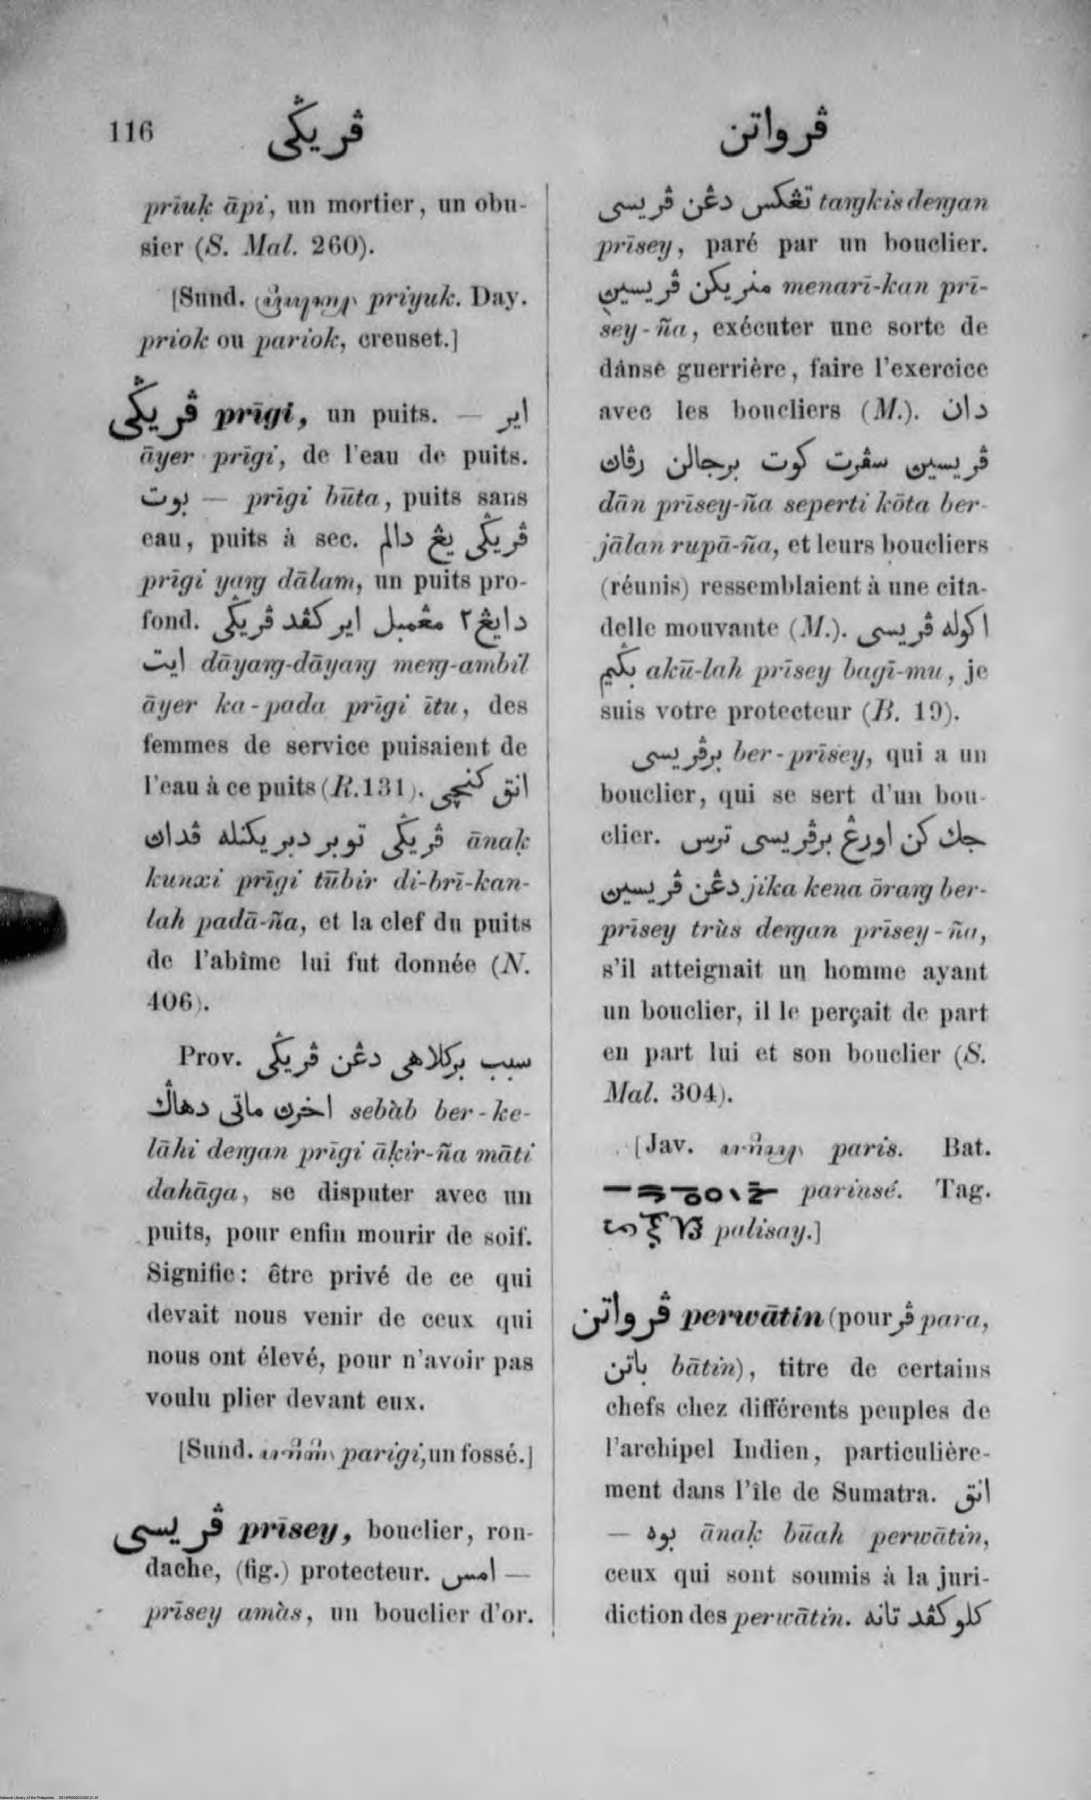 116 ڤريڬي ڤرواتن
prīuḳ āpi, un mortier, un obu-
sier (S. Mal. 260).
[Sund. priyuk. Day.
priok ou pariok, creuset.]
ڤريڬي prīgi, un puits. — اير
āyer prīgi, de l'eau de puits.
بوت — prīgi būta, puits sans
eau, puits à sec. ڤريڬي يڠ دالم
prīgi yaŋg dālam, un puits pro-
fond. دايڠ٢ مڠمبل اير كڤد ڤريڬي
ايت dāyaŋg-dāyaŋg meŋg-ambil
āyer ka-pada prīgi ītu, des
femmes de service puisaient de
l'eau à ce puits (R. 131). انق كنچي
ڤريڬي توبر دبريكنله ڤدان ānaḳ
kunxi prīgi tūbir di-brī-kan-
lah padā-ña, et la clef du puits
de l'abîme lui fut donnée (N.
406).
Prov. سبب بركلاهي دڠن ڤريڬي
اخرن ماتي دهاڬ sebàb ber-ke-
lāhi deŋgan prīgi āḳir-ña māti
dahāga, se disputer avec un
puits, pour enfin mourir de soif.
Signifie: être privé de ce qui
devait nous venir de ceux qui
nous ont élevé, pour n'avoir pas
voulu plier devant eux.
[Sund. parigi, un fossé.]
ڤريسي prīsey, bouclier, ron-
dache, (fig.) protecteur. امس —
prīsey amàs, un bouclier d'or.
تڠكس دڠن ڤريسي taŋgkis deŋgan
prīsey, paré par un bouclier.
منريكن ڤريسين menarī-kan prī-
sey-ña, exécuter une sorte de
danse guerrière, faire l'exercice
avec les boucliers (M.). دان
ڤريسين سڤرت كوت برجالن رڤان
dān prīsey-ña seperti kōta ber-
jālan rupā-ña, et leurs boucliers
(réunis) ressemblaient à une cita-
delle mouvante (M.). اكوله ڤريسي
بڬيم akū-lah prīsey bagī-mu, je
suis votre protecteur (B. 19).
برڤريسي ber-prīsey, qui a un
bouclier, qui se sert d'un bou-
clier. جك كن اورڠ برڤريسي ترس
دڠن ڤريسين jika kena ōraŋg ber-
prīsey trùs deŋgan prīsey-ña,
s'il atteignait un homme ayant
un bouclier, il le perçait de part
en part lui et son bouclier (S.
Mal. 304).
[Jav. paris. Bat.
parinsé. Tag.
palisay.]
ڤرواتن perwātin (pour ڤر para,
باتن bātin), titre de certains
chefs chez différents peuples de
l'archipel Indien, particulière-
ment dans l'île de Sumatra. انق
— بوه ānaḳ būah perwātin,
ceux qui sont soumis à la juri-
diction des perwātin. كلو كڤد تانه